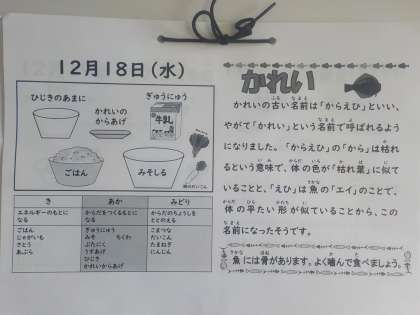 12月18日(水)
ひじきのあまに
かれいの
からあげ
ぎゅうにゅう
牛乳
ごはん
みそしる
き
あか
みどり
エネルギーのもとに
なる
からだをつくるもとに
なる
からだのちょうしを
ととのえる
ごはん
じゃがいも
さとう
あぶら
ぎゅうにゅう
みそ ちくわ
ぶたにく
うすあげ
ひじき
かれいからあげ
こまつな
だいこん
たまねぎ
にんじん
かれい
かれいの古い名前は「からえひ」といい、
やがて「かれい」という名前で呼ばれるよう
になりました。「からえひ」の「から」は枯れ
るという意味で、体の色が「枯れ葉」に似て
いることと、「えひ」は魚の「エイ」のことで、
体の平たい形が似ていることから、この
名前になったそうです。
魚には骨があります。よく噛んで食べましょう。